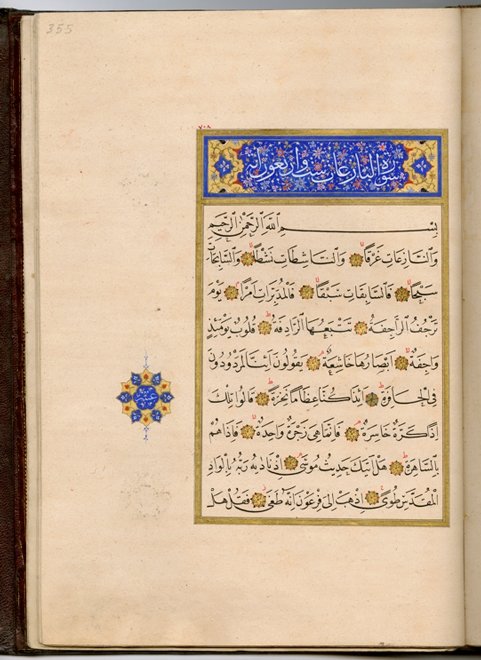 355
٧٠٨
سورة النازعات ست وأربعون آية
بِسْمِ اللهِ الرَّحْمٰنِ الرَّحِيمِ
وَالنَّازِعَاتِ غَرْقًا وَالنَّاشِطَاتِ نَشْطًا وَالسَّابِحَاتِ
سَبْحًا فَالسَّابِقَاتِ سَبْقًا فَالْمُدَبِّرَاتِ أَمْرًا يَوْمَ
تَرْجُفُ الرَّاجِفَةُ تَتْبَعُهَا الرَّادِفَةُ قُلُوبٌ يَوْمَئِذٍ
وَاجِفَةٌ أَبْصَارُهَا خَاشِعَةٌ يَقُولُونَ أَئِنَّا لَمَرْدُودُونَ
فِي الْحَافِرَةِ أَئِذَا كُنَّا عِظَامًا نَخِرَةً قَالُوا تِلْكَ
إِذًا كَرَّةٌ خَاسِرَةٌ فَإِنَّمَا هِيَ زَجْرَةٌ وَاحِدَةٌ فَإِذَا هُمْ
بِالسَّاهِرَةِ هَلْ أَتٰيكَ حَدِيثُ مُوسَى إِذْ نَادَاهُ رَبُّهُ بِالْوَادِ
الْمُقَدَّسِ طُوًى اِذْهَبْ إِلَى فِرْعَوْنَ إِنَّهُ طَغَى فَقُلْ هَلْ
عشر